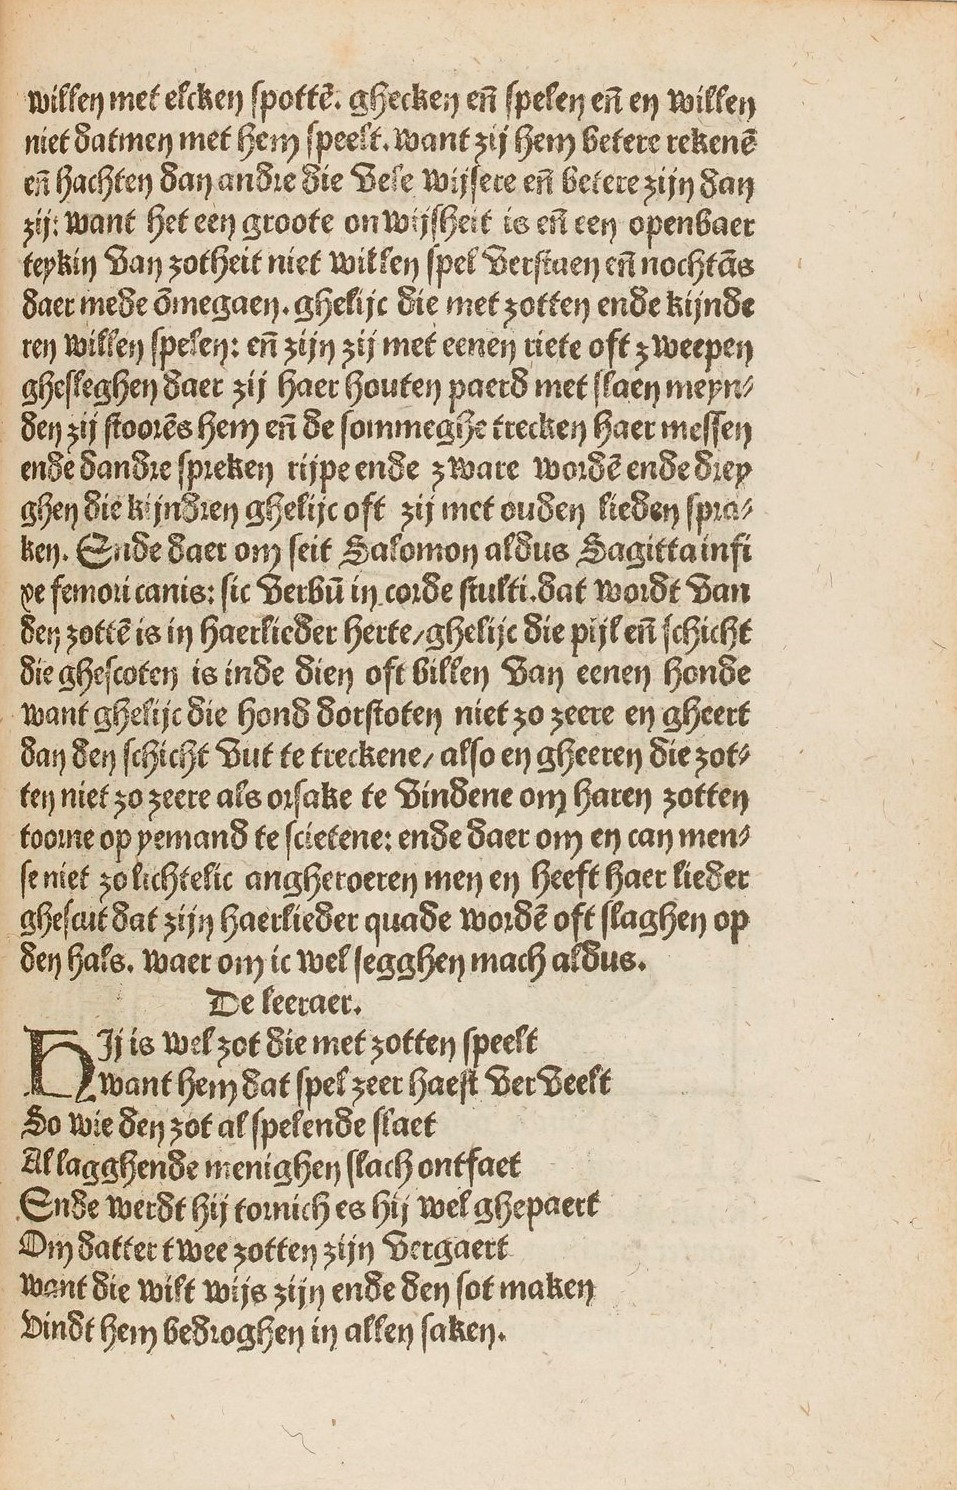 willen met elcken spottē. ghecken eñ spelen eñ en willen
niet datmen met hem speelt. want zij hem betere rekenē
eñ hachten dan andre die vele wijsere eñ betere zijn dan
zij: want het een groote onwijsheit is eñ een openbaer
teykin van zotheit niet willen spel verstaen eñ nochtās
daer mede ōmegaen. ghelijc die met zotten ende kijnde
ren willen spelen: eñ zijn zij met eenen riete oft zweepen
ghesleghen daer zij haer houten paerd met slaen meyn⸗
den zij stoorēs hem eñ de sommeghe trecken haer messen
ende dandre spreken rijpe ende zware wordē ende drey
ghen die kijndren ghelijc oft zij met ouden lieden spra⸗
ken. Ende daer om seit Salomon aldus Sagitta infi
xe femori canis: sic verbū in corde stulti. dat wordt van
den zottē is in haerlieder herte/ghelijc die pijl eñ schicht
die ghescoten is inde dien oft billen van eenen honde
want ghelijc die hond dorstoten niet zo zeere en gheert
dan den schicht vut te treckene/ also en gheeren die zot⸗
ten niet zo zeere als orsake te vindene om haren zotten
toorne op yemand te scietene: ende daer om en can men⸗
se niet zo lichtelic angheroeren men en heeft haer lieder
ghescut dat zijn haerlieder quade wordē oft slaghen op
den hals. waer om ic wel segghen mach aldus.
De leeraer.
HIj is wel zot die met zotten speelt
want hem dat spel zeer haest verveelt
So wie den zot al spelende slaet
Al lagghende menighen slach ontfaet
Ende werdt hij tornich es hij wel ghepaert
Om datter twee zotten zijn vergaert
want die wilt wijs zijn ende den sot maken
vindt hem bedroghen in allen saken.